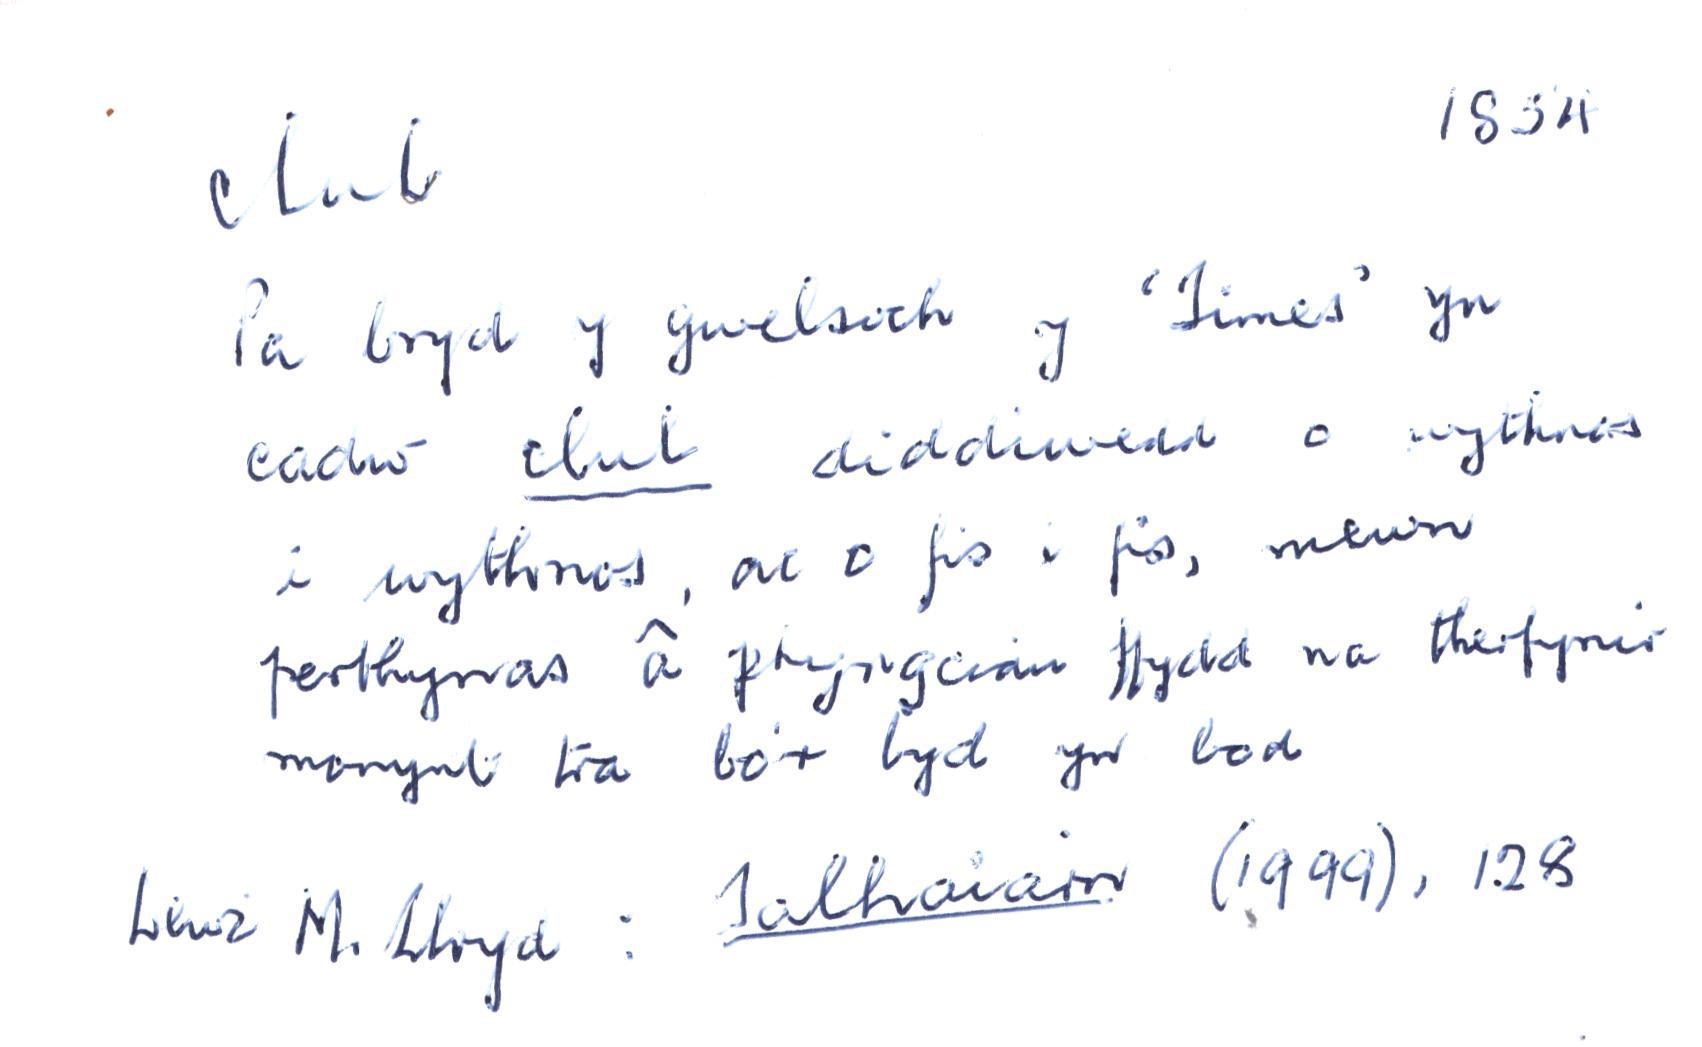 clul 1854
Pa bryd y gwelsoch y ‘Times’ yn
cadw clul diddiwedd o wythnos
i wythnos, ac o fis i fis, mewn
perthynas â phyngciau ffydd na therfynir
monynt tra bo'r byd yn bod
Lewis M. Lloyd : Talhaiarn (1999), 128